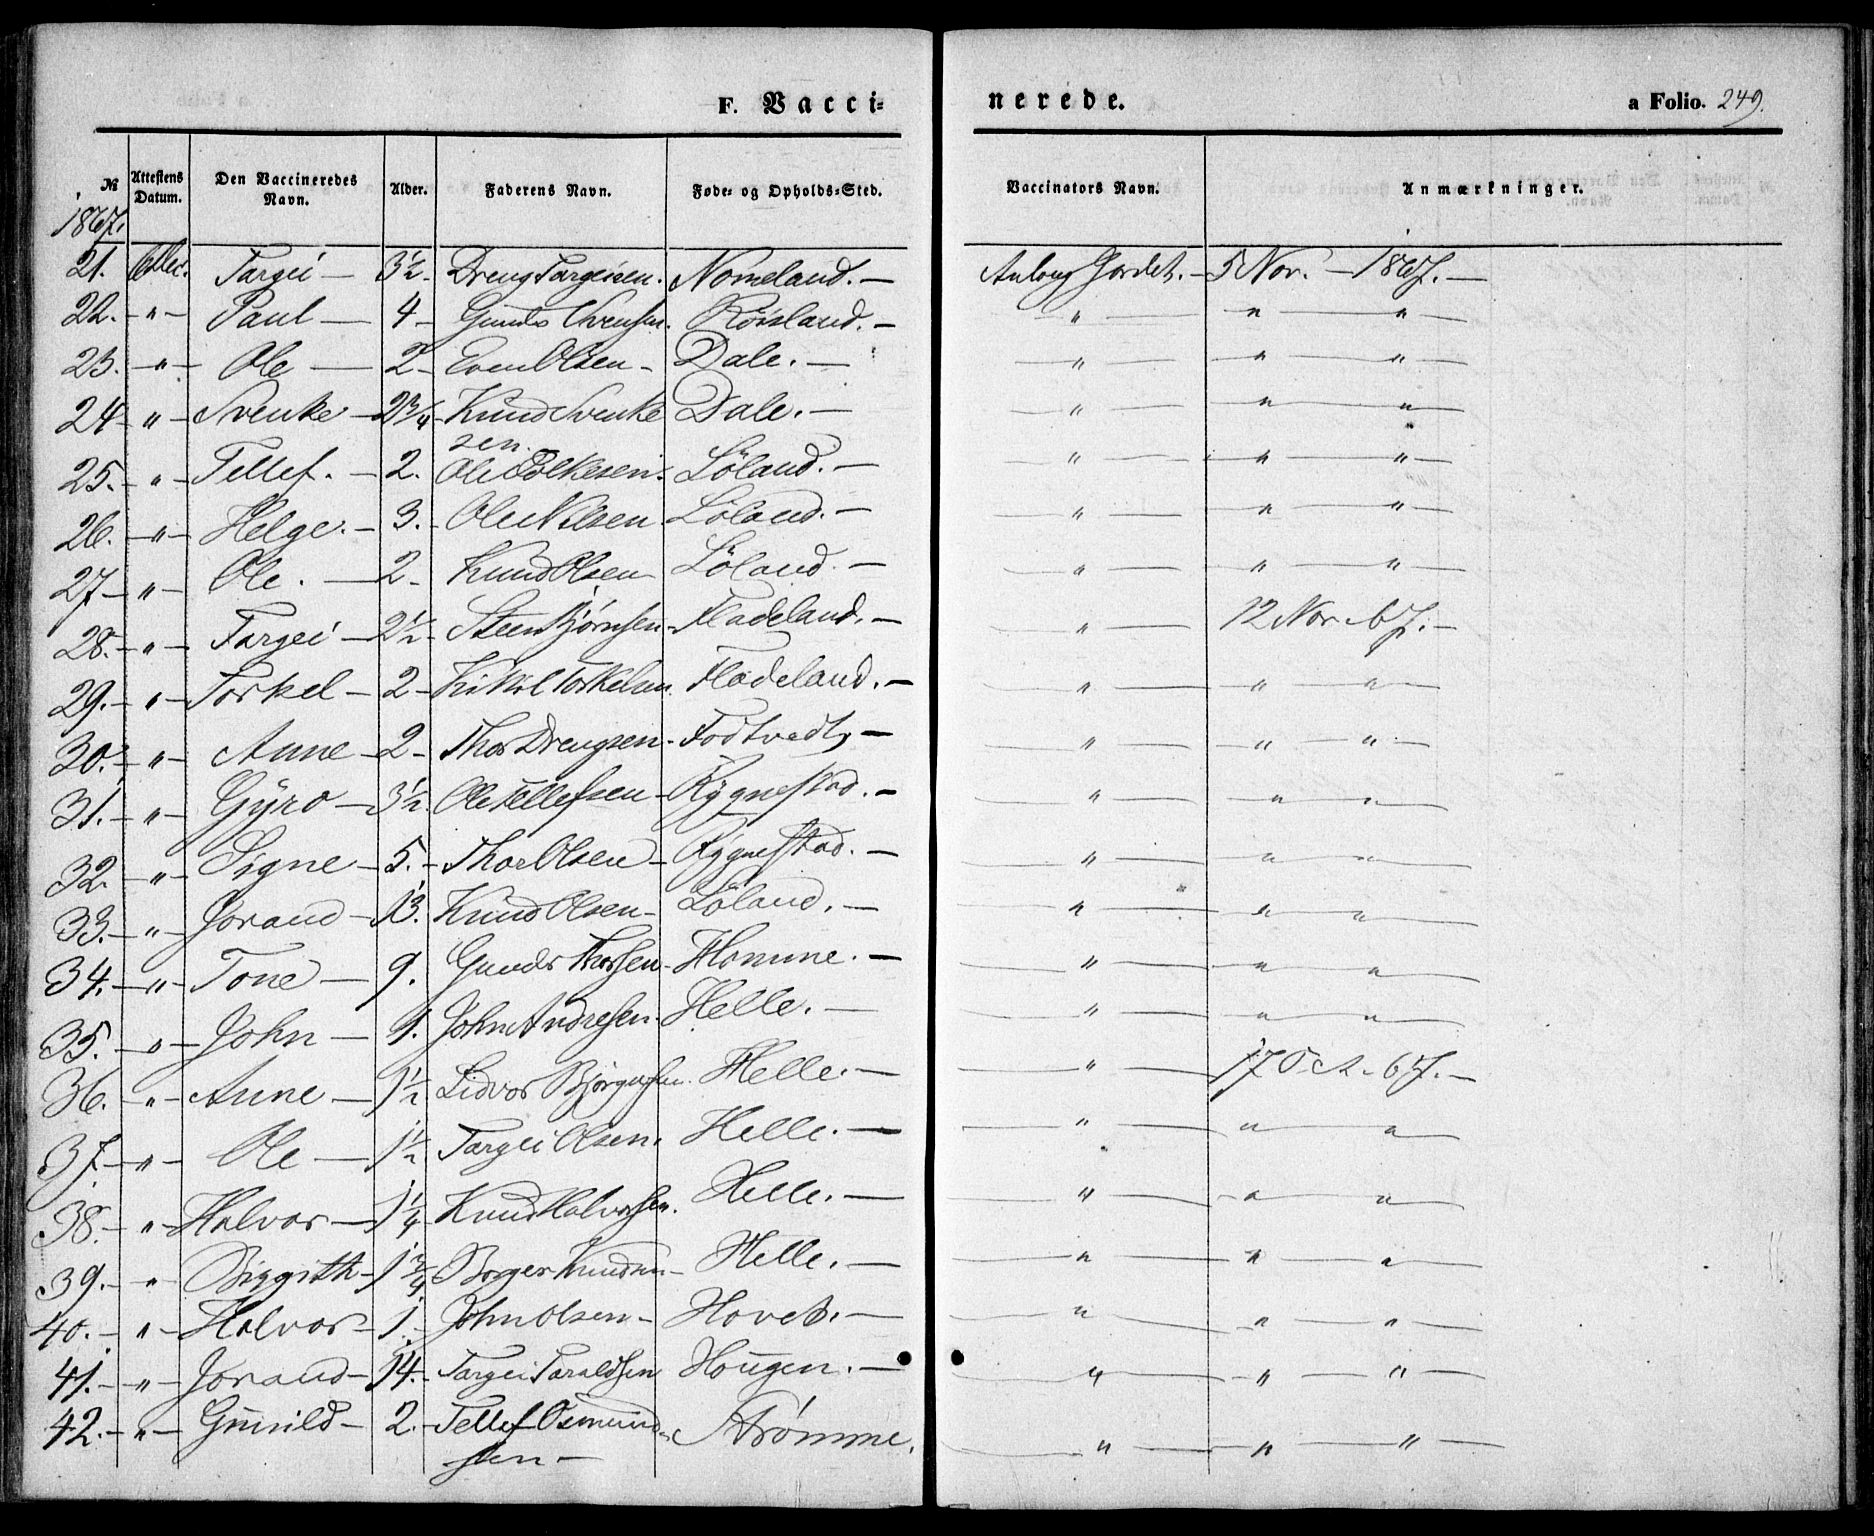 F. Vacci= nerede. a Folio. 249.
№ Attestens Datum. Den Vaccineredes Navn. Alder. Faderens Navn. Føde- og Opholds-Sted. Vaccinators Navn. Anmærkninger.
1867.
21. Targei — 3½ - Dreng Targeisen. Nomeland. — Gordet. - 5 Nov. - 1867. —
22. - " - Paul — 4 - Gunder Røisland. — " — " — "
23. - " - Ole — 2 - Even Olsen - Dale. — " — " — "
24 - " - Svenke - 2¾ - Knud Svenke Dale. — " — " — "
sen.
25. - " - Tellef. - 2. Ole Folkesen. Löland. — " — " — "
26. - " - Helge. - 3. Ole Nilsen Löland. — " — " — "
27 - " - Ole. — 2 - Knud Olsen Löland. — " — " — "
28. - " - Targei - 2½ - Steen Bjørnsen - Fladeland. — " — 12 Nov. 67. —
29. - " - Torkel - 2 - Torkelsen. Fladeland. — " — " — "
30. - " - Anne - 2 - Thor Drengsen - Fodtvedt, — " — " — "
31. - " - Gyro - 3½ Ole Tellefsen - Rygnestad. — " — " — "
32. - " - Signe - 5. - Thor Olsen - Rygnestad. — " — " — "
33. - " - Jorand - 13. Knud Olsen - Löland. — " — " — "
34. - " - Tone — 9. Gunder Thorsen - Homme. — " — " — "
35. - " - John — 1. John Andresen. Helle. — " — " — "
36. - " - Anne — 1½ Lidvor Bjørgusen. Helle. — " — 17 Oct. 67. —
37. - " - Ole — 1½ Targei Olsen. Helle. — " — " — "
38. - " - Halvor — 1¼ Knud Halvorsen. Helle. — " — " — "
39. - " - Birgith - 1¾ Borger Knudsen - Helle. — " — " — "
40. - " - Halvor - 1. John Olsen - Hovet. — " — " — "
41. - " - Jorand - 14. - Targei Taraldsen Hougen. — " — " — "
42. - " - Gunild - 2. - Tellef Osmund- Strømme. " — " — "
sen —